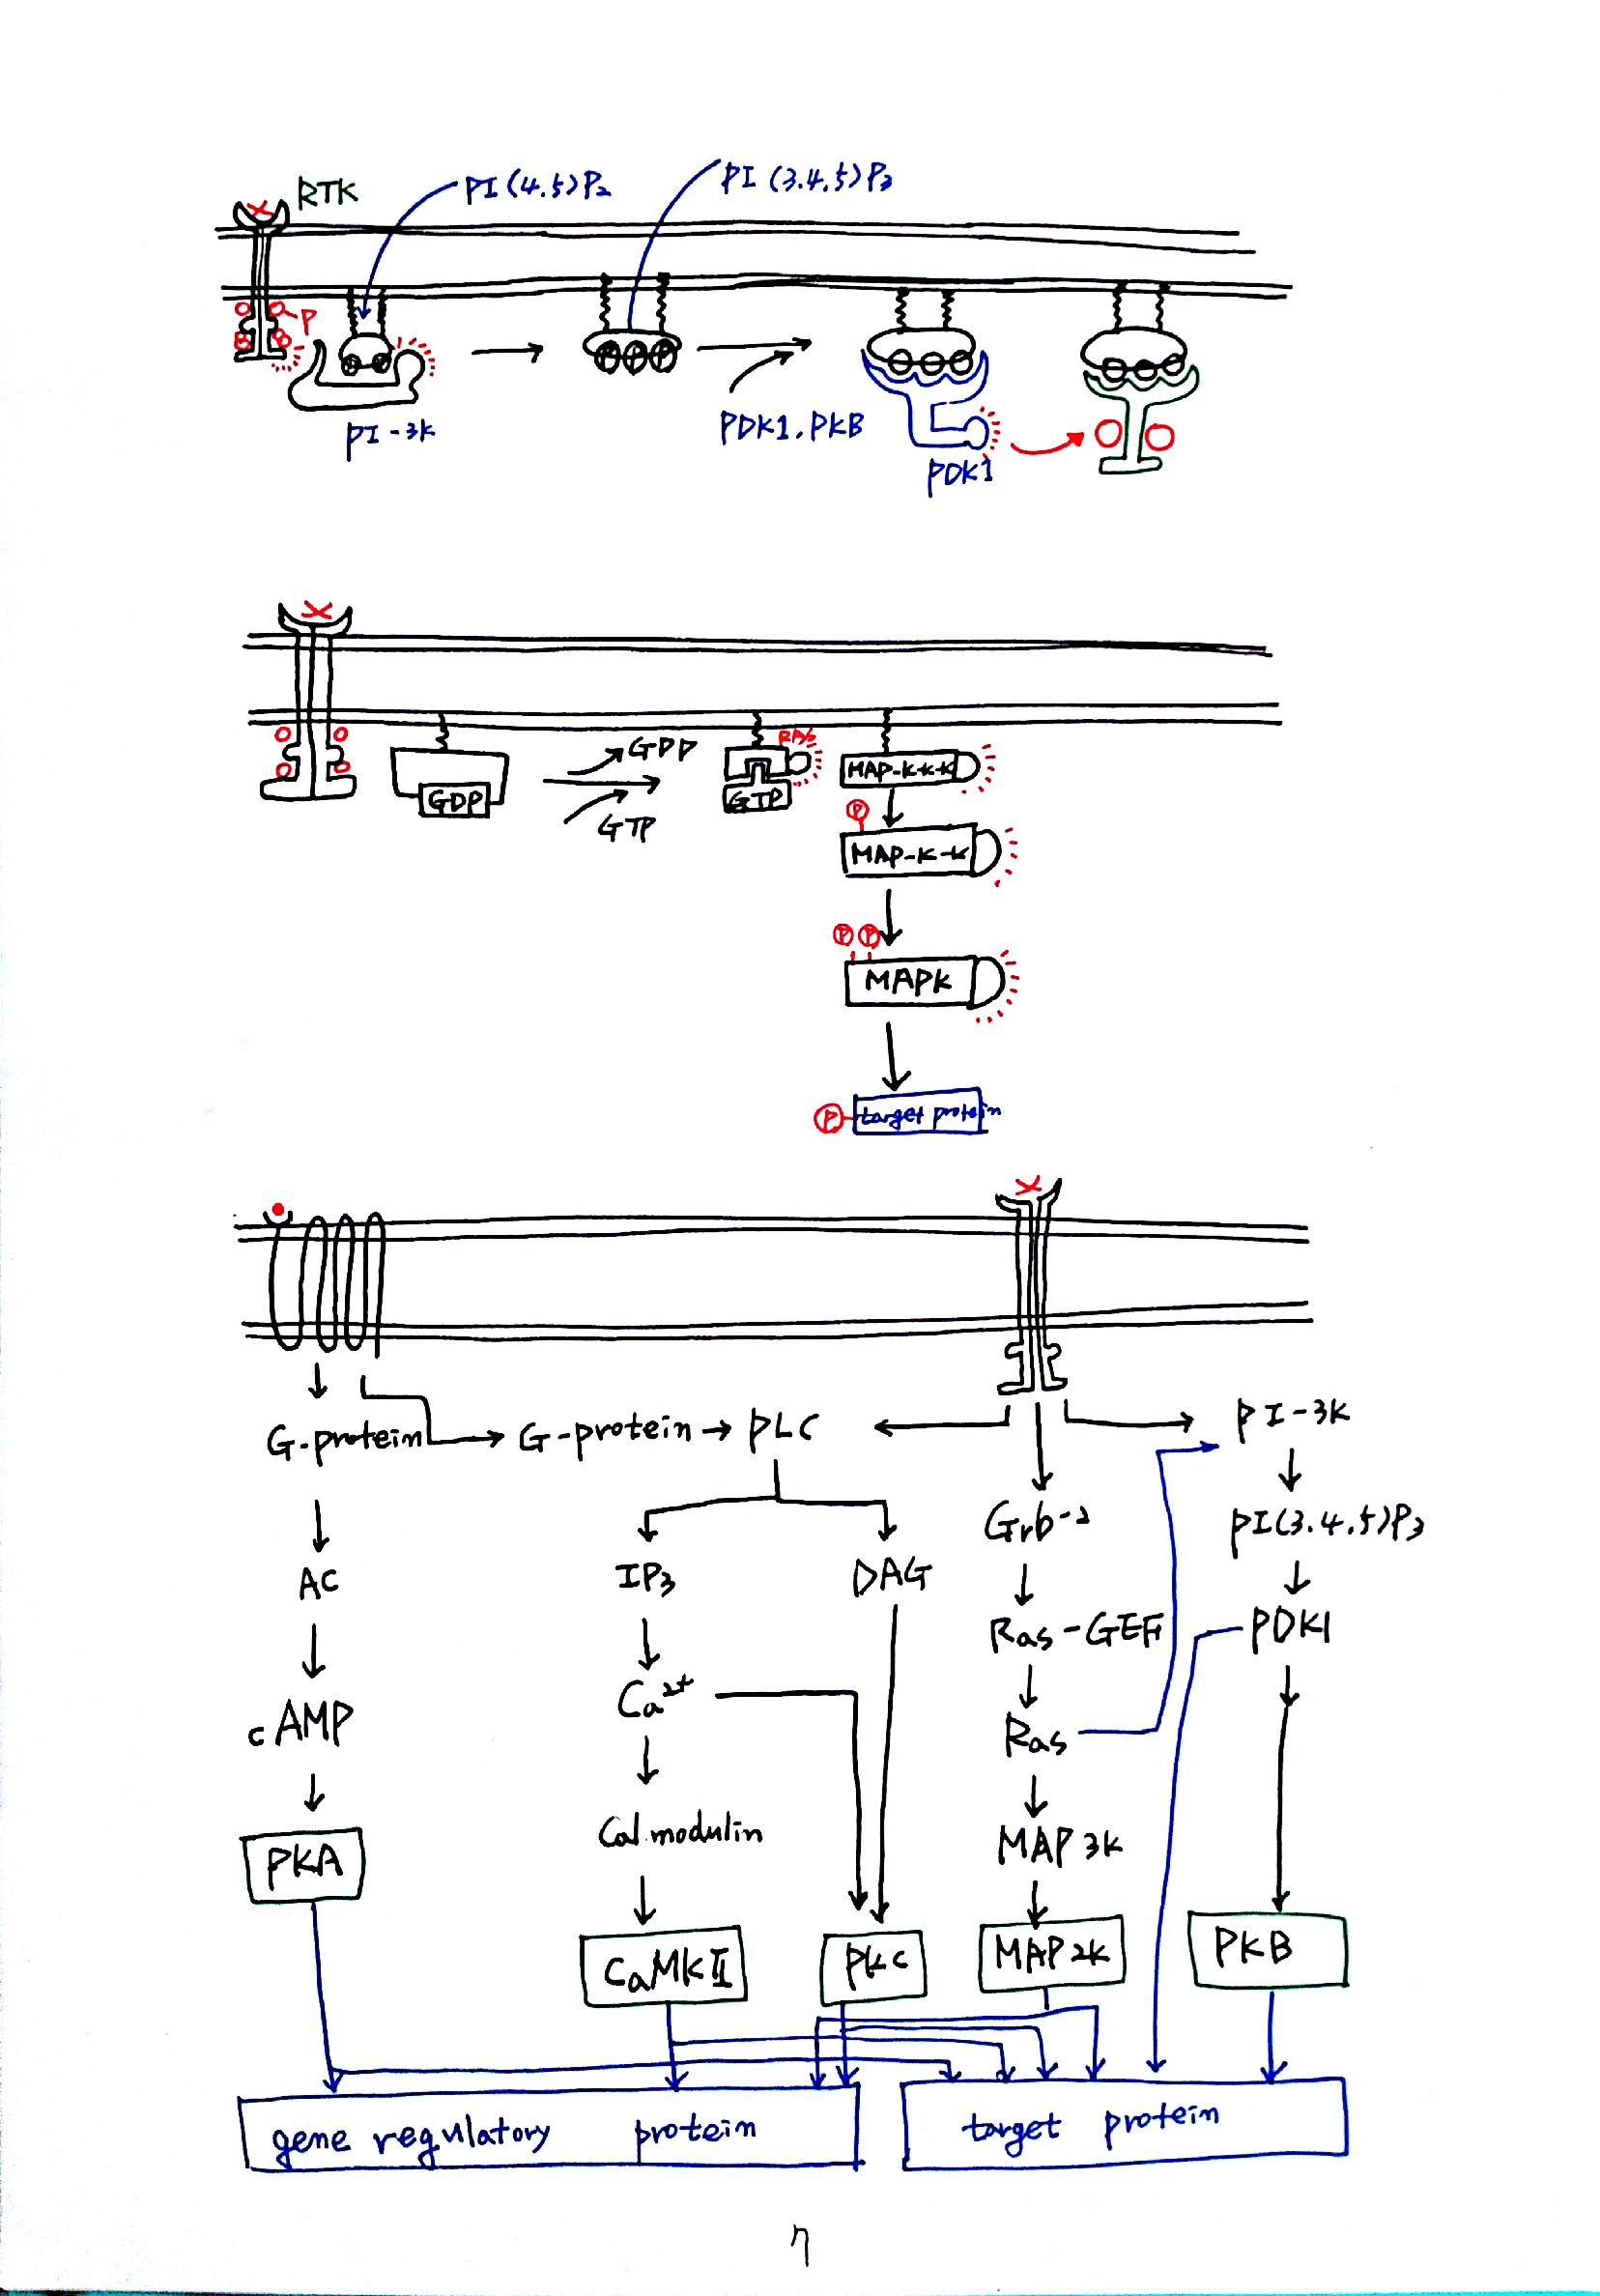 RTK
PI(4.5)P2
PI(3.4.5)P3
P
PI-3K
PDK1.PKB
PDK1
GDP
GDP
GTP
RAS
GTP
MAP-K-K-K
P
MAP-K-K
P P
MAPK
P target protein
G-protein
G-protein → PLC
PI-3K
Grb-2
PI(3.4.5)P3
AC
IP3
DAG
Ras-GEF
PDK1
cAMP
Ca2+
Ras
Calmodulin
MAP3K
PKA
CaMKII
PKC
MAP2K
PKB
gene regulatory protein
target protein
7